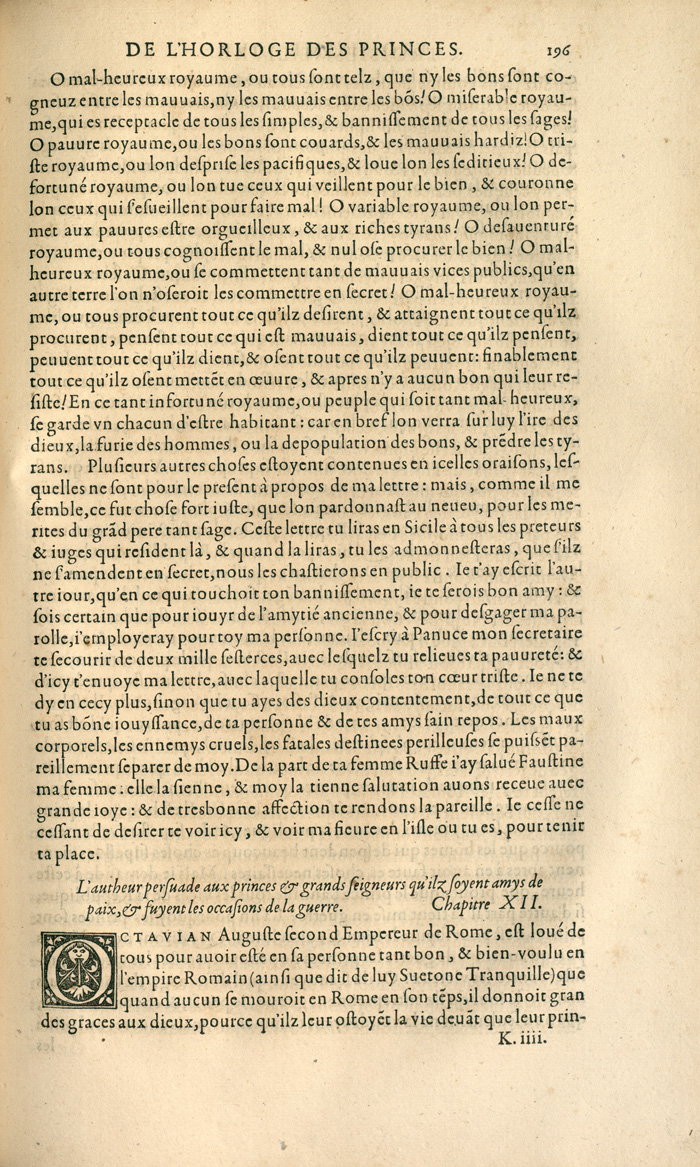 DE L'HORLOGE DES PRINCES. 196
O mal-heureux royaume, ou tous ſont telz, que ny les bons ſont co-
gneuz entre les mauuais,ny les mauuais entre les bōs! O miſerable royau-
me,qui es receptacle de tous les ſimples,& banniſſement de tous les ſages!
O pauure royaume,ou les bons ſont couards,& les mauuais hardiz!O tri-
ſte royaume,ou lon deſpriſe les pacifiques,& loue lon les ſeditieux! O de-
fortuné royaume, ou lon tue ceux qui veillent pour le bien, & couronne
lon ceux qui ſ'eſueillent pour faire mal! O variable royaume, ou lon per-
met aux pauures eſtre orgueilleux, & aux riches tyrans! O deſauenturé
royaume,ou tous cognoiſſent le mal, & nul oſe procurer le bien! O mal-
heureux royaume,ou ſe commettent tant de mauuais vices publics,qu'en
autre terre l'on n'oſeroit les commettre en ſecret! O mal-heureux royau-
me, ou tous procurent tout ce qu'ilz deſirent, & attaignent tout ce qu'ilz
procurent, penſent tout ce qui eſt mauuais, dient tout ce qu'ilz penſent,
peuuent tout ce qu'ilz dient,& oſent tout ce qu'ilz peuuent: finablement
tout ce qu'ilz oſent mettēt en œuure, & apres n'y a aucun bon qui leur re-
ſiſte!En ce tant infortuné royaume,ou peuple qui ſoit tant mal-heureux,
ſe garde vn chacun d'eſtre habitant: car en bref lon verra ſur luy l'ire des
dieux,la furie des hommes, ou la depopulation des bons, & prēdre les ty-
rans. Pluſieurs autres choſes eſtoyent contenues en icelles oraiſons, leſ-
quelles ne ſont pour le preſent à propos de ma lettre: mais, comme il me
ſemble,ce fut choſe fort iuſte, que lon pardonnaſt au neueu, pour les me-
rites du grād pere tant ſage. Ceſte lettre tu liras en Sicile à tous les preteurs
& iuges qui reſident là, & quand la liras, tu les admonneſteras, que ſ'ilz
ne ſ'amendent en ſecret,nous les chaſtierons en public. Ie t'ay eſcrit l'au-
tre iour,qu'en ce qui touchoit ton banniſſement, ie te ſerois bon amy: &
ſois certain que pour iouyr de l'amytié ancienne, & pour deſgager ma pa-
rolle,i'employeray pour toy ma perſonne. I'eſcry à Panuce mon ſecretaire
te ſecourir de deux mille ſeſterces,auec leſquelz tu relieues ta pauureté: &
d'icy t'enuoye ma lettre,auec laquelle tu conſoles ton cœur triſte. Ie ne te
dy en cecy plus,ſinon que tu ayes des dieux contentement,de tout ce que
tu as bōne iouyſſance,de ta perſonne & de tes amys ſain repos. Les maux
corporels,les ennemys cruels,les fatales deſtinees perilleuſes ſe puiſſēt pa-
reillement ſeparer de moy.De la part de ta femme Ruffe i'ay ſalué Fauſtine
ma femme: elle la ſienne, & moy la tienne ſalutation auons receue auec
grande ioye: & de tresbonne affectiō te rendons la pareille. Ie ceſſe ne
ceſſant de deſirer te voir icy, & voir ma fieure en l'iſle ou tu es, pour tenir
ta place.
L'autheur perſuade aux princes & grands ſeigneurs qu'ilz ſoyent amys de
paix,& fuyent les occaſions de la guerre. Chapitre XII.
OCTAVIAN Auguſte ſecond Empereur de Rome, eſt loué de
tous pour auoir eſté en ſa perſonne tant bon, & bien-voulu en
l'empire Romain(ainſi que dit de luy Suetone Tranquille)que
quand aucun ſe mouroit en Rome en ſon tēps,il donnoit gran
des graces aux dieux,pource qu'ilz leur oſtoyēt la vie deuāt que leur prin-
K. iiii.